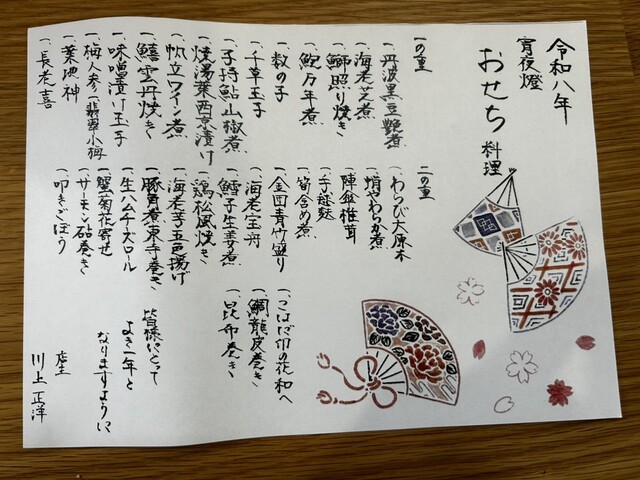 令和八年
宵夜燈
おせち料理
一の重
一、丹波黒豆艶煮
一、海老芝煮
一、鰤照り焼き
一、鮑万年煮
一、数の子
一、千草玉子
一、子持鮎山椒煮
一、焼湯葉西京漬け
一、帆立ワイン煮
一、鱚雲丹焼き
一、味噌漬け玉子
一、梅人参 一、翡翠小梅
一、葉地神
一、長老喜
二の重
一、わらび大原木
一、蛸やわらか煮
一、陣傘椎茸
一、手毬麩
一、筍含め煮
一、金団青竹盛り
一、海老宝舟
一、鱈子生姜煮
一、鶏松風焼き
一、海老芋五色揚げ
一、豚角煮東寺巻き
一、生ハムチーズロール
一、蟹菊花寄せ
一、サーモン砧巻き
一、叩きごぼう
一、こはだ卯の花和へ
一、鯛龍皮巻き
一、昆布巻き
皆様にとって
よき一年と
なりますように
店主
川上正洋